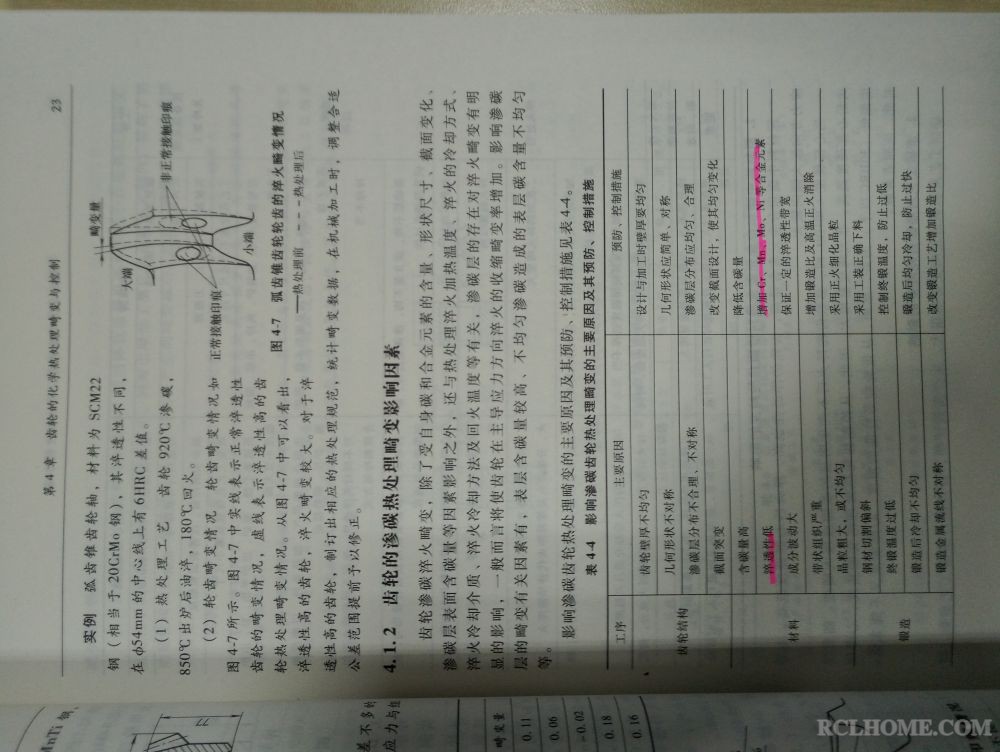 第4章 齿轮的化学热处理畸变与控制 23
实例 弧齿锥齿轮轴，材料为SCM22
钢（相当于20CrMo钢），其淬透性不同，
在φ54mm的中心线上有6HRC差值。
（1）热处理工艺 齿轮920℃渗碳，
850℃出炉后油淬，180℃回火。
（2）轮齿畸变情况 轮齿畸变情况如
图4-7所示。图4-7中实线表示正常淬透性
齿轮的畸变情况，虚线表示淬透性高的齿
轮热处理畸变情况。从图4-7中可以看出，
淬透性高的齿轮，淬火畸变较大。对于淬
透性高的齿轮，制订出相应的热处理规范，统计畸变数据，在机械加工时，调整合适
公差范围提前予以修正。
畸变量
大端
非正常接触印痕
正常接触印痕
小端
图4-7 弧齿锥齿轮轮齿的淬火畸变情况
——热处理前 ---热处理后
4.1.2 齿轮的渗碳热处理畸变影响因素
齿轮渗碳淬火畸变，除了受自身碳和合金元素的含量、形状尺寸、截面变化、
渗碳层表面含碳量等因素影响之外，还与热处理淬火加热温度、淬火的冷却方式、
淬火冷却介质、淬火冷却方法及回火温度等有关，渗碳层的存在对淬火畸变有明
显的影响，一般而言将使齿轮在主导应力方向淬火的收缩畸变率增加。影响渗碳
层的畸变有关因素有，表层含碳量较高、不均匀渗碳造成的表层碳含量不均匀
等。
影响渗碳齿轮热处理畸变的主要原因及其预防、控制措施见表4-4。
表4-4 影响渗碳齿轮热处理畸变的主要原因及其预防、控制措施
工序 主要原因 预防、控制措施
齿轮结构
齿轮壁厚不均匀 设计与加工时壁厚要均匀
几何形状不对称 几何形状应简单、对称
渗碳层分布不合理、不对称 渗碳层分布应均匀、合理
截面突变 改变截面设计，使其均匀变化
材料
含碳量高 降低含碳量
淬透性低 增加Cr、Mn、Mo、Ni等合金元素
成分波动大 保证一定的淬透性带宽
带状组织严重 增加锻造比及高温正火消除
晶粒粗大，或不均匀 采用正火细化晶粒
锻造
钢材切割偏斜 采用工装正确下料
终锻温度过低 控制终锻温度，防止过低
锻造后冷却不均匀 锻造后均匀冷却，防止过快
锻造金属流线不对称 改变锻造工艺增加锻造比
MnTi 钢
77
差不多的
应力与组
畸变量
0.11
0.06
-0.02
0.18
0.16
RCLHOME.COM